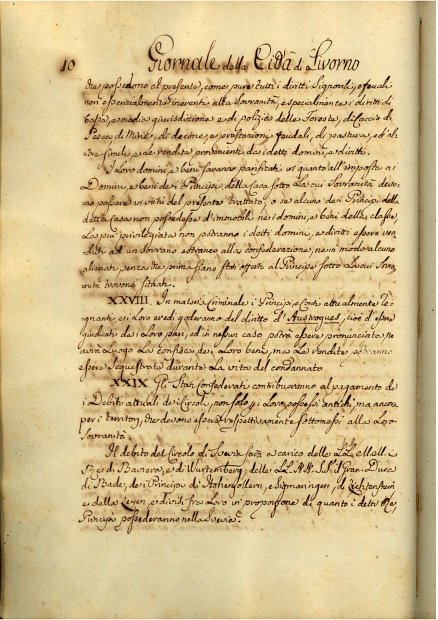 10 Giornale della Città di Livorno
che possedono al presente, come pure tutti i diritti Signorili, e feudali
non essenzialmente inerenti alla Sovranità, e specialmente i diritti di
bassa, e media giurisdizione e di polizia delle Foreste, di Caccia di
Pesca di Mine, di decime, e prestazioni feudali, di pastura, ed al
tre simili, e le rendite provenienti da i detti domini, e diritti.
I loro domini, e beni saranno parificati in quanto all'imposta ai
Domini, e beni dei Principi della Casa sotto la cui Sovranità devo-
no passare in virtù del presente trattato, o se alcuno dei Principi della
detta Casa non possedesse d'immobili, ne i domini, e beni della classe
la più privilegiata non potranno i detti domini, e diritti essere ven-
duti ad un Sovrano estraneo alla Confederazione, ne in modo alcuno
alienati, senza che prima siano stati offerti al Principe sotto la cui Sov-
ranità trovansi situati.
XXVIII. In materia Criminale i Principi, e Conti attualmente Re-
gnanti, e i loro eredi goderanno del diritto d'Austregues, cioè d'esser
giudicati da i loro pari, ed in nessun caso potrà essere pronunciata, ne
avrà luogo la confisca dei loro beni, ma le rendite potranno
essere sequestrate durante la vita del condannato
XXIX. Gli Stati Confederati contribuiranno al pagamento de
i Debiti attuali dei Circoli, non solo per i loro possessi antichi, ma ancora
per i territori, che devono essere rispettivamente sottomessi alla loro
Sovranità.
Il debito del Circolo di Svevia sarà a carico delle LL. Mae. Il
Re di Baviera, e di Wurtemberg, delle LL. AA. S. il Gran-Duca
di Bade, dei Principi di Hohenzollern, e Sigmaringen, di Lichtenstein
e della Leyen, e divisi fra loro in proporzione di quanto i detti Re, e
Principi possederanno nella Svevia.